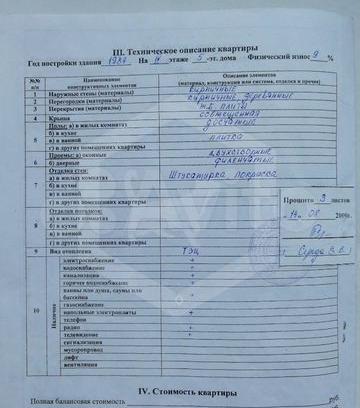 III. Техническое описание квартиры
Год постройки здания На этаже 5 -эт. дома Физический износ 9 %
№№ п/п
Наименование конструктивных элементов
Описание элементов
(материал, конструкция или система, отделка и прочее)
1 Наружные стены (материалы) кирпичные
2 Перегородки (материалы) кирпичные, деревянные
3 Перекрытия (материалы) ж.б. плиты
4 Крыша совмещенная
5 Полы: а) в жилых комнатах дощатые
б) в кухне
в) в ванной плитка
г) в других помещениях квартиры
6 Проемы: а) оконные двухстворные
б) дверные филенчатые
7 Отделка стен:
а) в жилых комнатах Штукатурка покраска
б) в кухне
в) в ванной
г) в других помещениях квартиры
8 Отделка потолков:
а) в жилых комнатах
б) в кухне
в) в ванной
г) в других помещениях квартиры
Прошито 3 листов
9 Вид отопления ТЭЦ
10 Наличие
электроснабжение +
водоснабжение +
канализации +
горячее водоснабжение +
ванны или душа, сауны или бассейна +
газоснабжение
напольные электроплиты +
телефон
радио +
телевидение +
сигнализация
мусоропровод
лифт
вентиляция
IV. Стоимость квартиры
Полная балансовая стоимость руб.